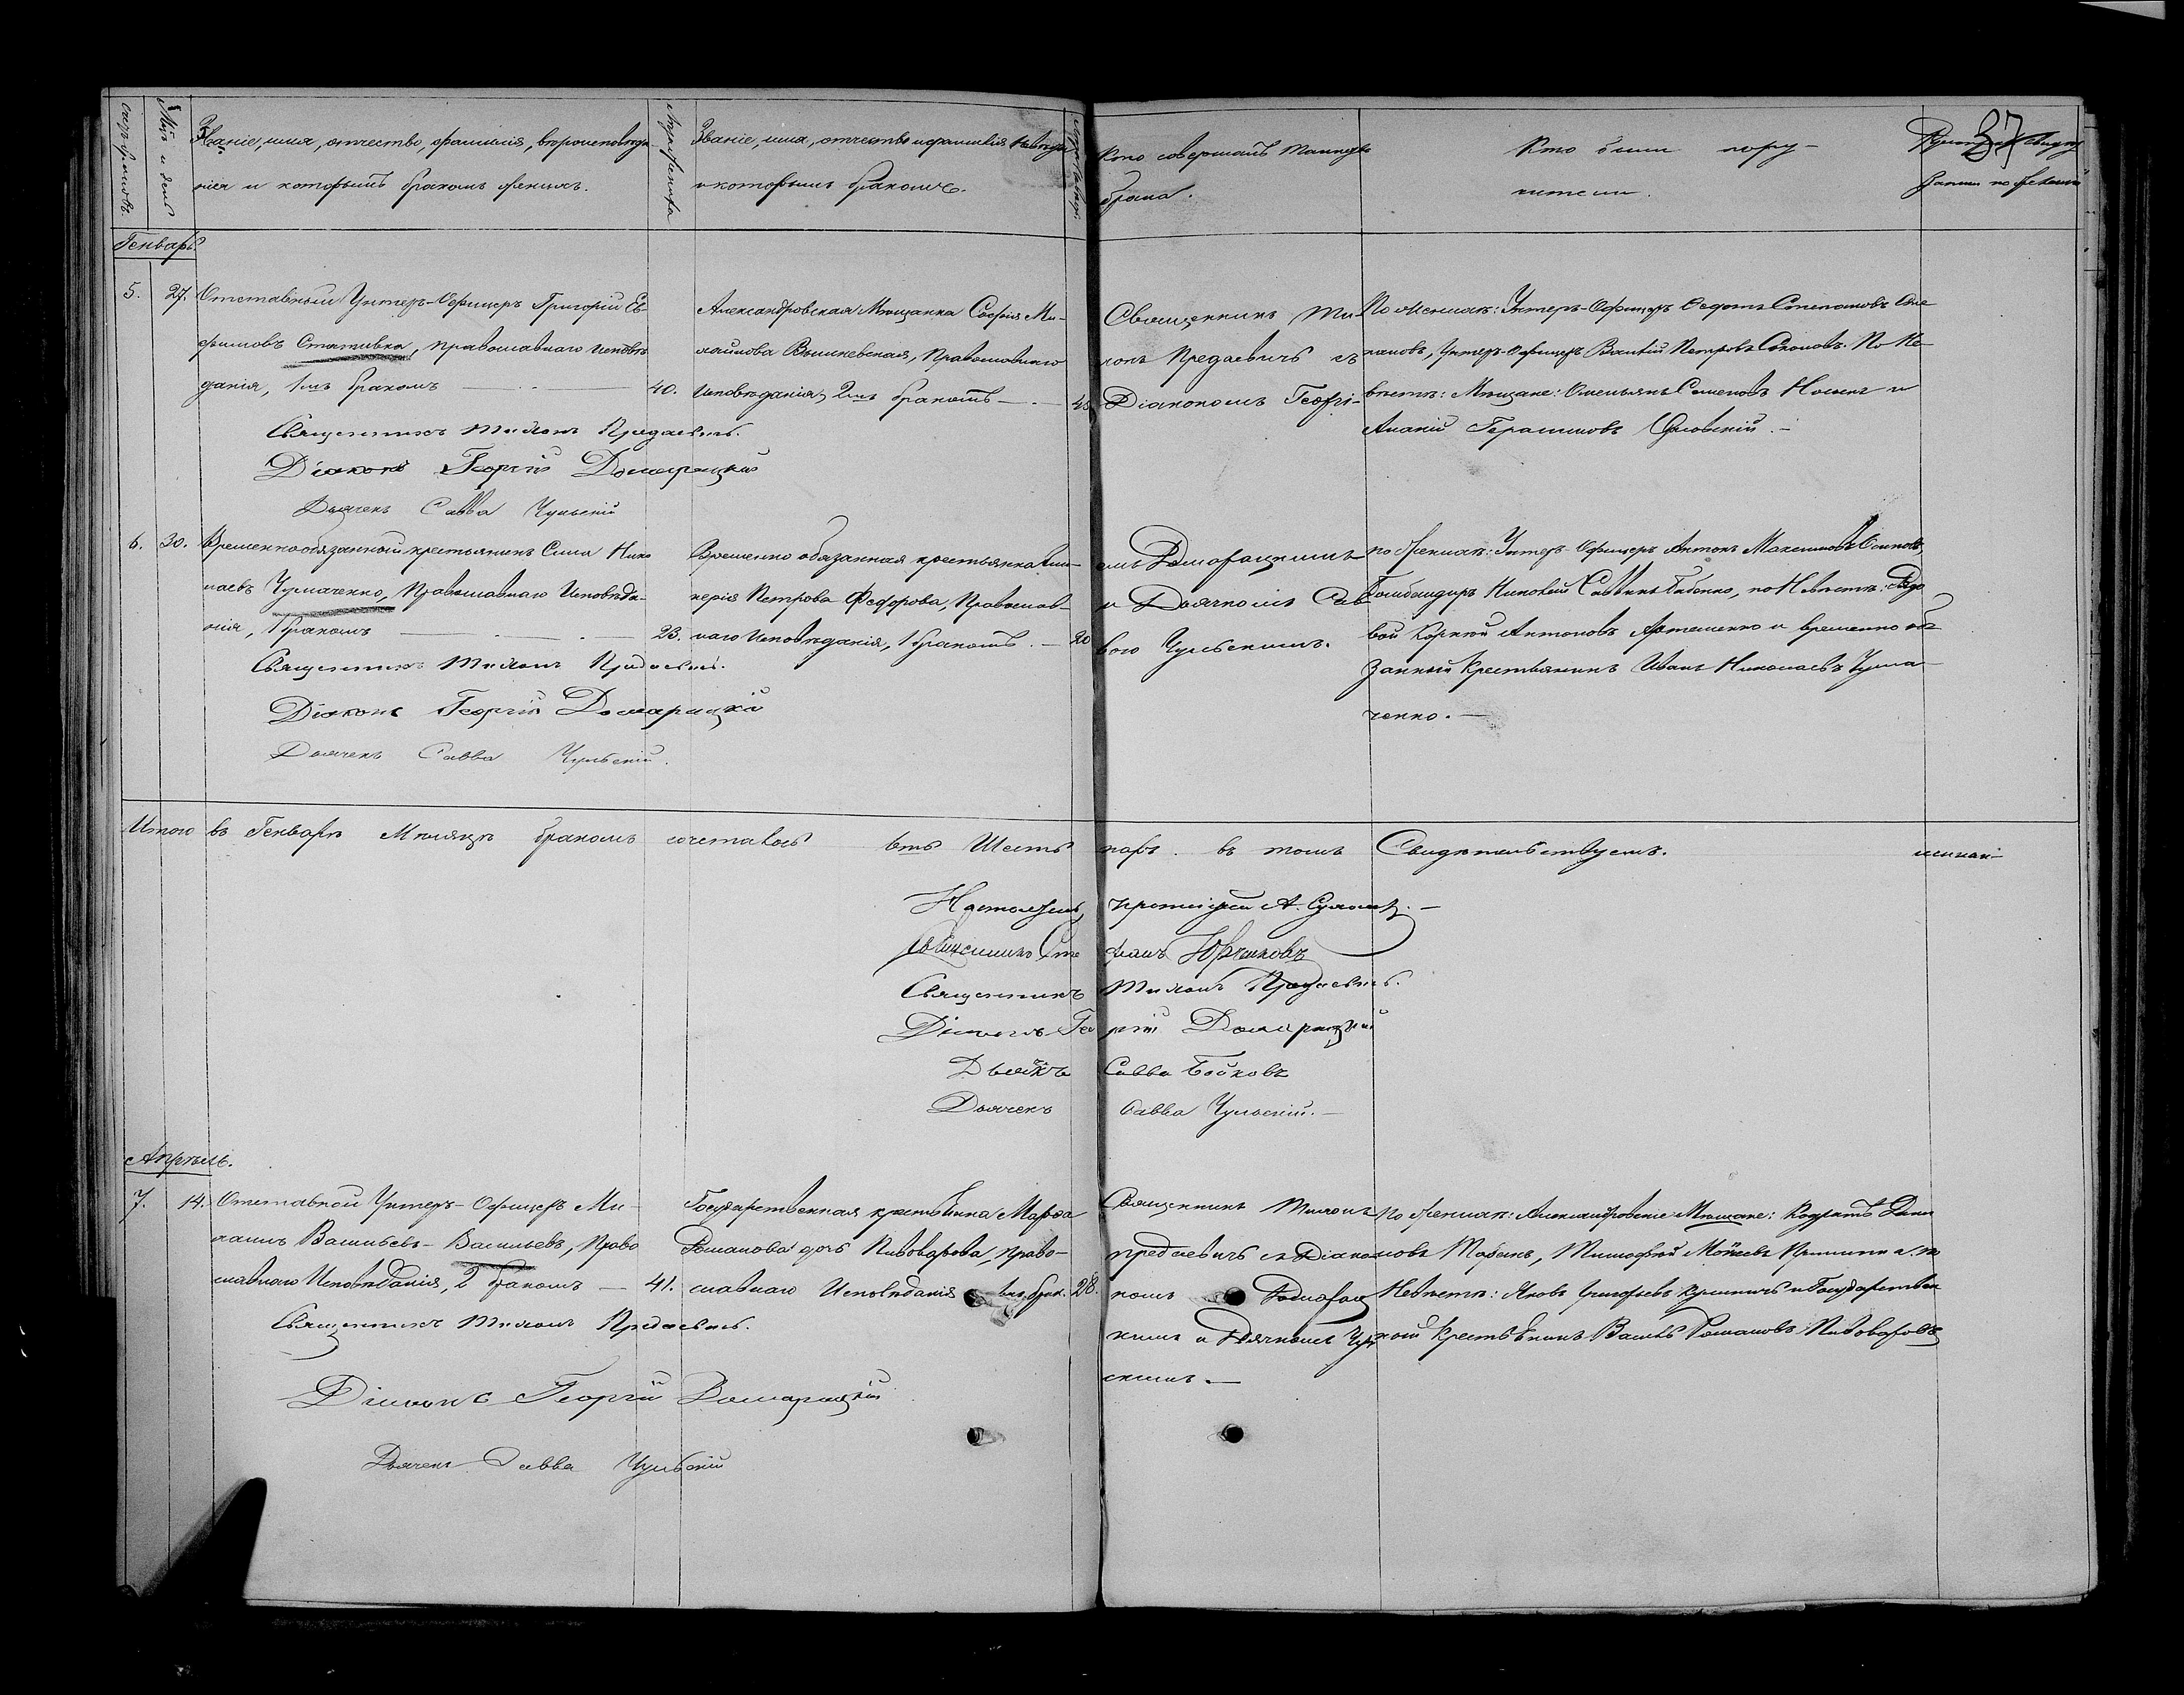 37
Счетъ браковъ.
Мѣс. и день
Званіе, имя, отчество, фамилія, вѣроисповѣда-
нія и которымъ бракомъ женихъ.
Лѣта жениха
Званіе, имя, отчество и фамилія невѣсты
и которымъ бракомъ.
Кто совершалъ таинство
брака.
Кто были пору-
чители.
Генварь
5. 27. Отставный Унтеръ-Офицеръ Григорій Еѳ-
фимовъ Стативка, православнаго исповѣ-
данія, 1мъ бракомъ — 40.
Александровская Мѣщанка Софія Ми-
хайлова Вышневская, Православнаго
исповѣданія, 2мъ бракомъ — 45
Священникъ Ти-
хонъ Предаевичъ съ
Діакономъ Георгі-
По женихѣ: Унтеръ-Офицеръ Ѳедотъ Степановъ Сте-
пановъ, Унтеръ-Офицеръ Василій Петровъ Соколовъ. По Не-
вѣстѣ: Мѣщане: Омельянъ Семеновъ и
Ананій Герасимовъ Орловскій. —
Священникъ Тихонъ Предаевичъ.
Діаконъ Георгій Домарацкій
Дьячекъ Савва Чульскій
6. 30. Временнообязанный крестьянинъ Сила Нико
лаевъ Чумаченко, Православнаго Исповѣда-
нія, 1 бракомъ — 23.
Временно обязанная крестьянка
Петрова Федорова, Православ-
наго исповѣданія, 1 бракомъ. — 20
емъ Домарацкимъ
и Дьячкомъ Сав-
вою Чульскимъ.
по женихѣ: Унтеръ-Офицеръ Антонъ Максимовъ Осиповъ,
Бомбандиръ Николай Саввинъ Бабенко, по Невѣстѣ: Рядо
вой Корній Антоновъ Артеменко и временно обя
занный Крестьянинъ Иванъ Николаевъ Чума-
ченко. —
Священникъ Тихонъ Предаевичъ.
Діаконъ Георгій Домарацкій
Дьячекъ Савва Чульскій.
Итого въ Генварѣ Мѣсяцѣ бракомъ сочеталось шесть паръ. въ томъ Свидѣтельствуемъ.
Настоятель, протоіерей А.
Священникъ Стефанъ Юрченковъ
Священникъ Тихонъ Предаевичъ.
Діаконъ Георгій Домарацкій
Дьячекъ Савва Бойковъ
Дьячекъ Савва Чульскій. —
Апрѣль.
7. 14. Отставной Унтеръ-Офицеръ Ми-
хаилъ Васильевъ-Васильевъ, Право
славнаго Исповѣданія, 2 бракомъ — 41.
Государственная крестьянка Марѳа
Романова дочь Пивоварова, право-
славнаго Исповѣданія брак. 28.
Священникъ Тихонъ
предаевичъ съ Діако-
номъ Домарац
кимъ и Дьячкомъ Чул
скимъ. —
По женихѣ: Александровскіе Мѣщане: Кодратъ Дани
ловъ Табанъ, Тимофей Моисеевъ и по
Невѣстѣ: Яковъ Григорьевъ и Государствен
ной крестьянинъ Василь Романовъ Пивоваровъ
Священникъ Тихонъ Предаевичъ.
Діаконъ Георгій Домарацкій
Дьячекъ Савва Чульскій